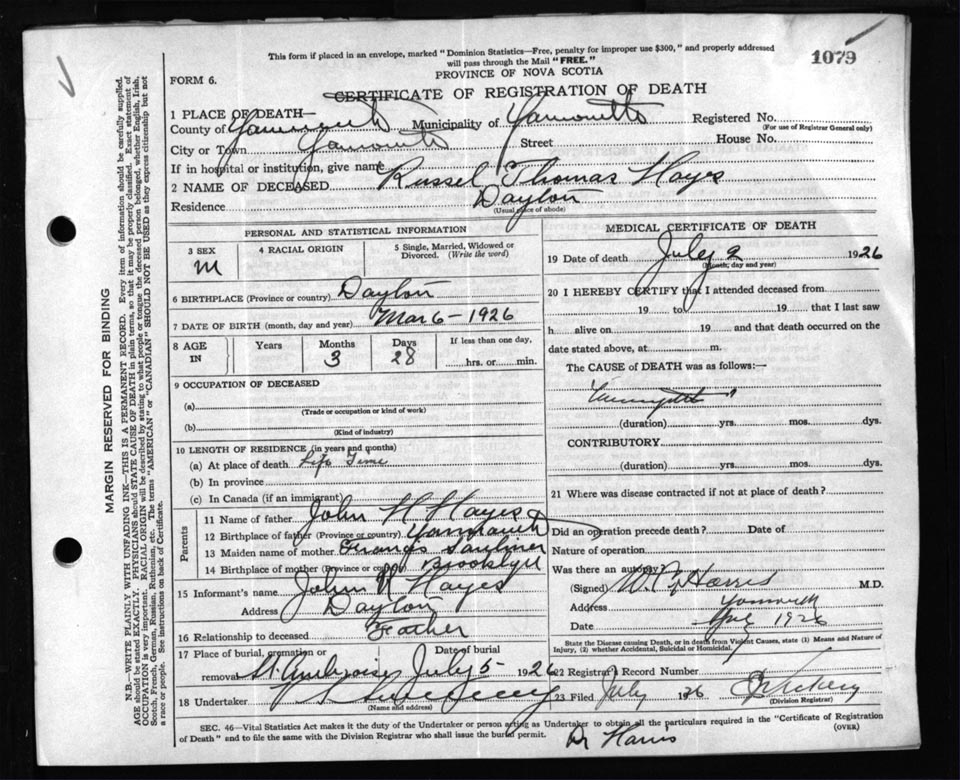 This form if placed in an envelope, marked "Dominion Statistics—Free, penalty for improper use $300," and properly addressed
will pass through the Mail "FREE."
1079
PROVINCE OF NOVA SCOTIA
FORM 6.
CERTIFICATE OF REGISTRATION OF DEATH
1 PLACE OF DEATH—
County of Yarmouth Municipality of Yarmouth Registered No.
(For use of Registrar General only)
City or Town Yarmouth Street House No.
If in hospital or institution, give name
2 NAME OF DECEASED Russel Thomas Hayes
Residence Dayton
(Usual place of abode)
PERSONAL AND STATISTICAL INFORMATION
3 SEX 4 RACIAL ORIGIN 5 Single, Married, Widowed or
Divorced. (Write the word)
M
6 BIRTHPLACE (Province or country) Dayton
7 DATE OF BIRTH (month, day and year) Mar 6 – 1926
8 AGE Years Months Days If less than one day,
IN 3 28 hrs. or min.
9 OCCUPATION OF DECEASED
(a)
(Trade or occupation or kind of work)
(b)
(Kind of industry)
10 LENGTH OF RESIDENCE (in years and months)
(a) At place of death Life Time
(b) In province
(c) In Canada (if an immigrant)
Parents
11 Name of father John H Hayes
12 Birthplace of father (Province or country) Yarmouth
13 Maiden name of mother Frances Saulnier
14 Birthplace of mother (Province or country) Brooklyn
15 Informant's name John H Hayes
Address Dayton
16 Relationship to deceased Father
17 Place of burial, cremation or Date of burial
removal St. Ambroise July 5 – 1926
18 Undertaker
(Name and address)
MEDICAL CERTIFICATE OF DEATH
19 Date of death July 2 1926
(Month, day and year)
20 I HEREBY CERTIFY that I attended deceased from
19 to 19 that I last saw
h alive on 19 and that death occurred on the
date stated above, at m.
The CAUSE of DEATH was as follows:—
(duration) yrs. mos. dys.
CONTRIBUTORY
(duration) yrs. mos. dys.
21 Where was disease contracted if not at place of death?
Did an operation precede death? Date of
Nature of operation
Was there an autopsy?
(Signed) Harris M.D.
Address Yarmouth
Date 1926
State the Disease causing Death, or in death from Violent Causes, state (1) Means and Nature of
Injury, (2) whether Accidental, Suicidal or Homicidal.
22 Registrar's Record Number
23 Filed July 1926 Vickery
(Division Registrar)
SEC. 46—Vital Statistics Act makes it the duty of the Undertaker or person acting as Undertaker to obtain all the particulars required in the "Certificate of Registration
of Death" and to file the same with the Division Registrar who shall issue the burial permit.
(OVER)
Dr Harris
MARGIN RESERVED FOR BINDING
N.B.—WRITE PLAINLY WITH UNFADING INK—THIS IS A PERMANENT RECORD. Every item of information should be carefully supplied.
AGE should be stated EXACTLY. PHYSICIANS should STATE CAUSE OF DEATH in plain terms, so that it may be properly classified. Exact statement of
OCCUPATION is very important. RACIAL ORIGIN will be described by stating to what people or tongue the deceased person belonged, whether English, Irish,
Scotch, French, German, Russian, Ruthenian, etc. The terms "AMERICAN" or "CANADIAN" SHOULD NOT BE USED as they express citizenship but not
a race or people. See instructions on back of Certificate.